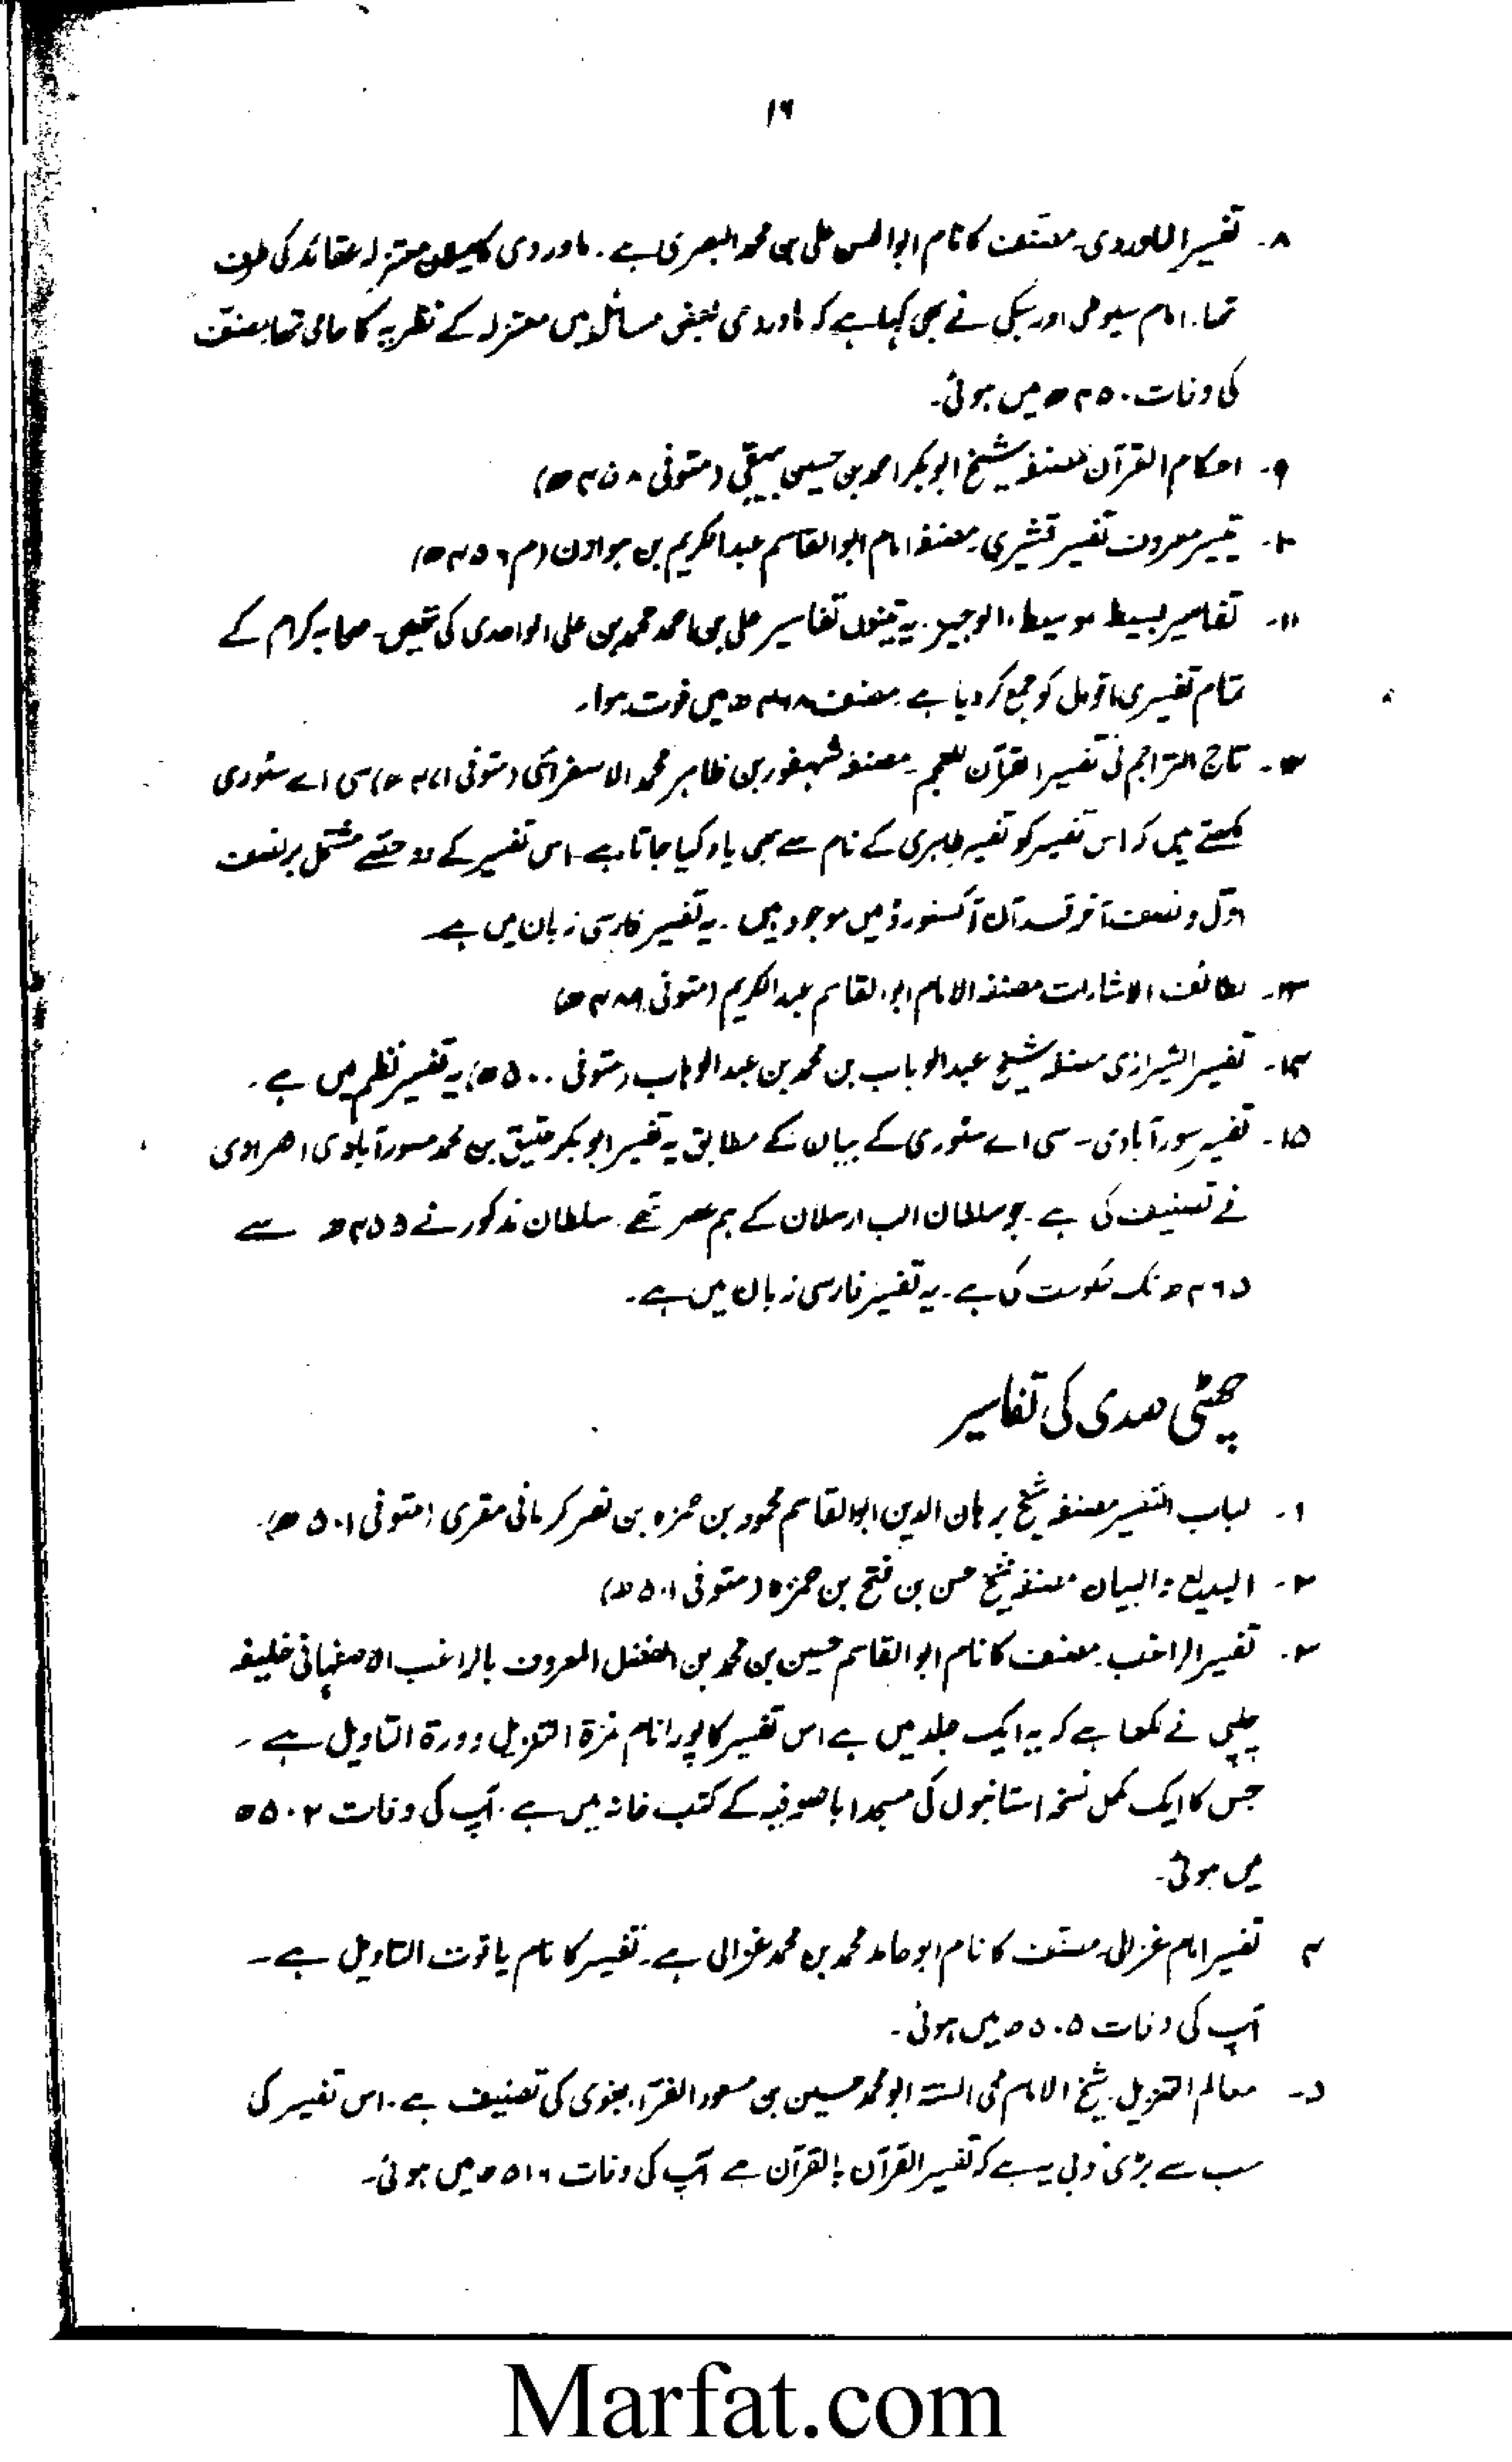 ۱۶
۸۔ تفسیر الماوردی۔ مصنف کا نام ابوالحسن علی بن محمد البصری ہے۔ ماوردی کا میلان معتزلہ عقائد کی طرف
تھا۔ امام سیوطی اور سبکی نے بھی کہا ہے کہ ماوردی بعض مسائل میں معتزلہ کے نظریہ کا حامی تھا مصنف
کی وفات ۴۵۰ھ میں ہوئی۔
۹۔ احکام القرآن مصنفہ شیخ ابوبکر احمد بن حسین بیہقی (متوفی ۴۵۸ھ)
۱۰۔ تیسیر معروف تفسیر قشیری۔ مصنفہ امام ابوالقاسم عبدالکریم بن ہوازن (م ۴۵۶ھ)
۱۱۔ تفاسیر بسیط، وسیط، الوجیز۔ یہ تینوں تفاسیر علی بن احمد محمد بن علی الواحدی کی تھیں۔ صحابہ کرام کے
تمام تفسیری اقوال کو جمع کر دیا ہے۔ مصنف ۴۶۸ھ میں فوت ہوا۔
۱۲۔ تاج التراجم فی تفسیر القرآن للعجم۔ مصنفہ شہفور بن طاہر محمد الاسفرائنی (متوفی ۴۷۱ھ) سی اے سٹوری
لکھتے ہیں کہ اس تفسیر کو تفسیر طاہری کے نام سے بھی یاد کیا جاتا ہے۔ اس تفسیر کے دو حصے مشتمل بر نصف
اوّل و نصف آخر قرآن آکسفورڈ میں موجود ہیں۔ یہ تفسیر فارسی زبان میں ہے۔
۱۳۔ لطائف الاشارات مصنفہ الامام ابوالقاسم عبدالکریم (متوفی ھ)
۱۴۔ تفسیر الشیرازی مصنفہ شیخ عبدالوہاب بن محمد بن عبدالوہاب (متوفی ۵۰۰ھ) یہ تفسیر نظم میں ہے۔
۱۵۔ تفسیر سورآبادی۔ سی اے سٹوری کے بیان کے مطابق یہ تفسیر ابوبکر عتیق بن محمد سورآبادی الھراوی
نے تصنیف کی ہے۔ جو سلطان الب ارسلان کے ہم عصر تھے۔ سلطان مذکور نے ۴۵۵ھ سے
۴۶۵ھ تک حکومت کی ہے۔ یہ تفسیر فارسی زبان میں ہے۔
چھٹی صدی کی تفاسیر
۱۔ لباب التفسیر مصنفہ شیخ برہان الدین ابوالقاسم محمود بن حمزہ بن نصر کرمانی مقری (متوفی ۵۰۱ھ)۔
۲۔ البدیع و البیان مصنفہ شیخ حسن بن فتح بن حمزہ (متوفی ۵۰۱ھ)
۳۔ تفسیر الراغب۔ مصنف کا نام ابوالقاسم حسین بن محمد بن المفضل المعروف بالراغب الاصفہانی خلیفہ
چلپی نے لکھا ہے کہ یہ ایک جلد میں ہے اس تفسیر کا پورا نام غرۃ التنزیل و درۃ التاویل ہے۔
جس کا ایک مکمل نسخہ استانبول کی مسجد ایاصوفیہ کے کتب خانہ میں ہے۔ آپ کی وفات ۵۰۲ھ
میں ہوئی۔
۴ تفسیر امام غزالی۔ مصنف کا نام ابو حامد محمد بن محمد غزالی ہے۔ تفسیر کا نام یاقوت التاویل ہے۔
آپ کی وفات ۵۰۵ھ میں ہوئی۔
۵۔ معالم التنزیل۔ شیخ الامام محی السنۃ ابو محمد حسین بن مسعود الفراء بغوی کی تصنیف ہے۔ اس تفسیر کی
سب سے بڑی خوبی یہ ہے کہ تفسیر القرآن بالقرآن ہے آپ کی وفات ۵۱۶ھ میں ہوئی۔
Marfat.com